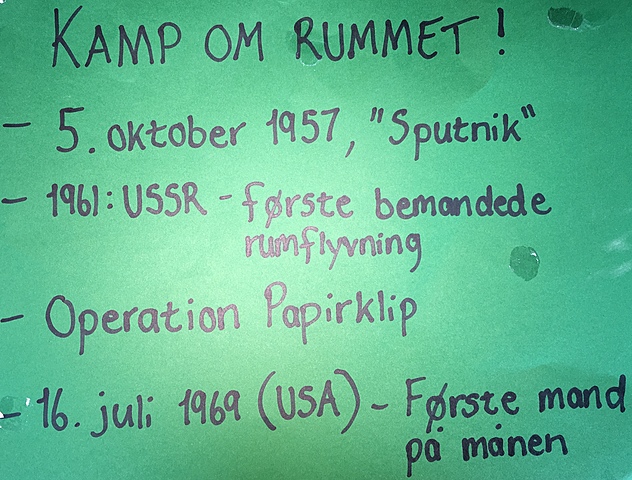 KAMP OM RUMMET!
- 5. oktober 1957, "Sputnik"
- 1961: USSR - første bemandede
rumflyvning
- Operation Papirklip
- 16. juli 1969 (USA) - Første mand
på månen